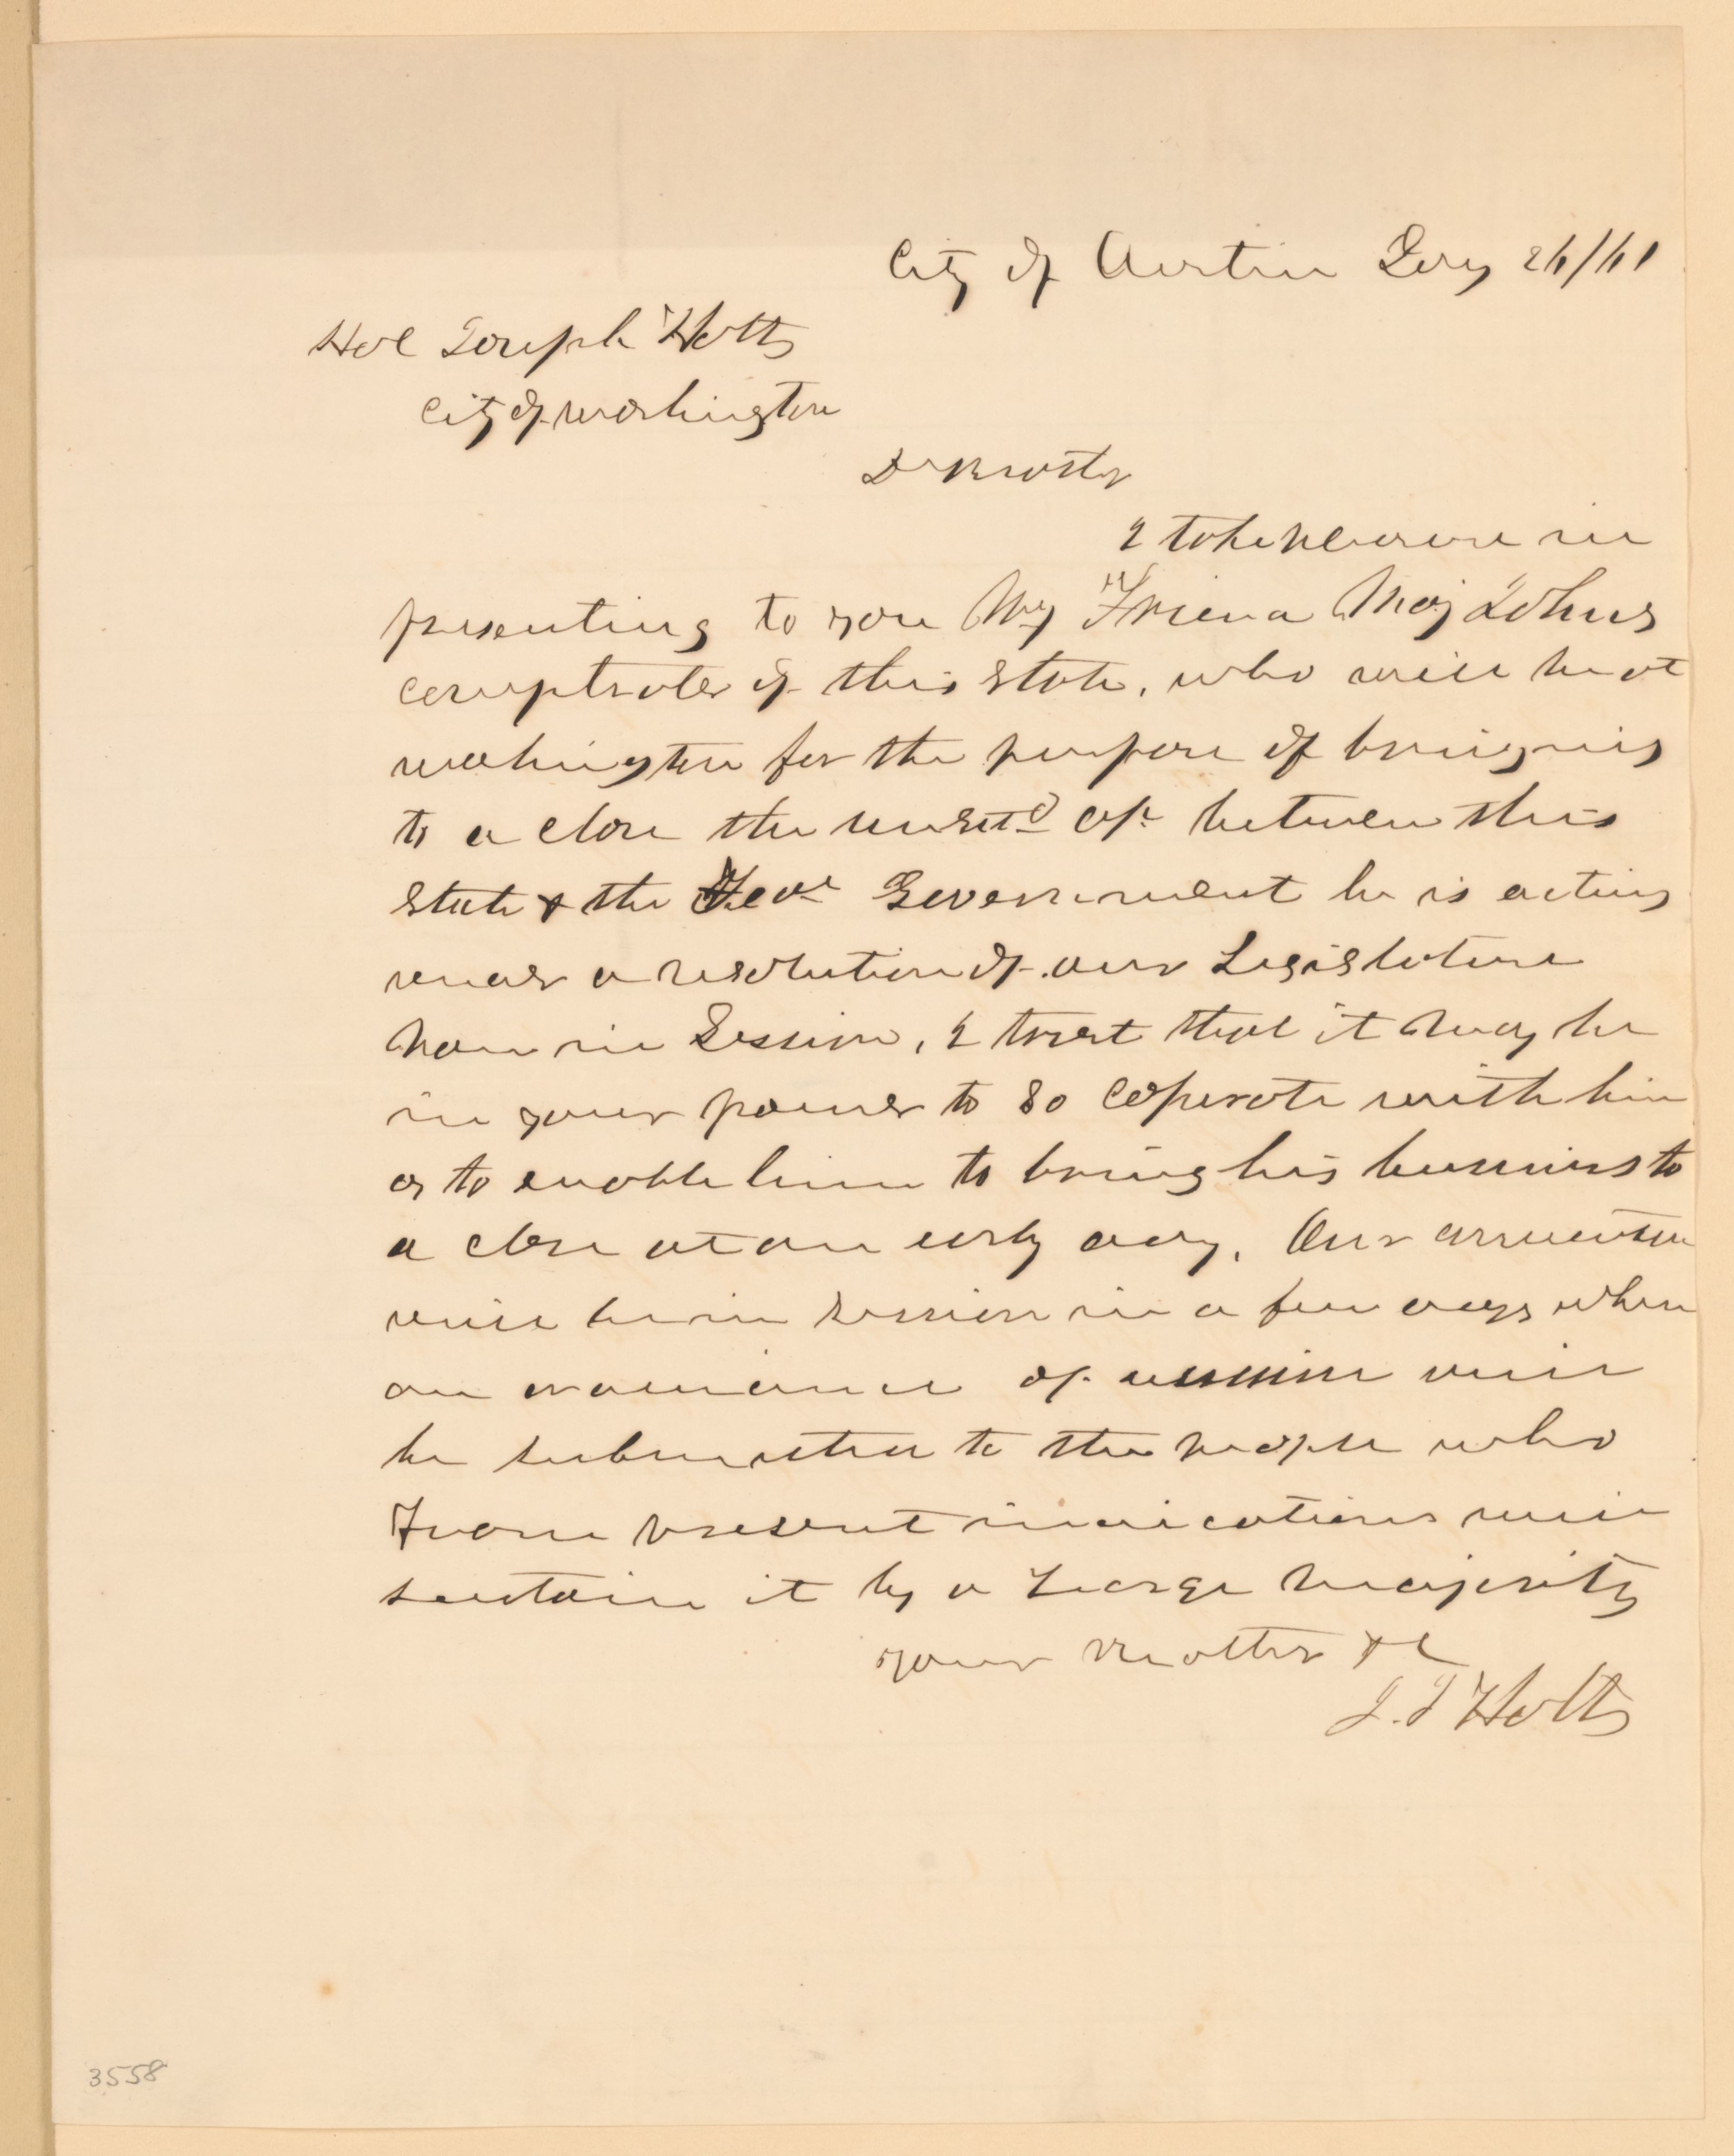 City of Austin Jany 26/61
Hol Joseph Holt
City of Washington
Dr Brother
I take pleasure in
presenting to you My Friend Maj Johns
comptroler of this State, who will be at
washington for the purpose of bringing
to a close the unsetd between this
State & the Fedl Government he is acting
under a resolution of our Legislature
now in Session, I trust that it may be
in your power to so coperate with him
as to enable him to bring his business to
a close at an early day. Our convention
will be in session in a few days when
an ordinance of will
be submitted to the people who
From present indications will
sustain it by a Large majority
your Brother &c
J. T Holt
3558